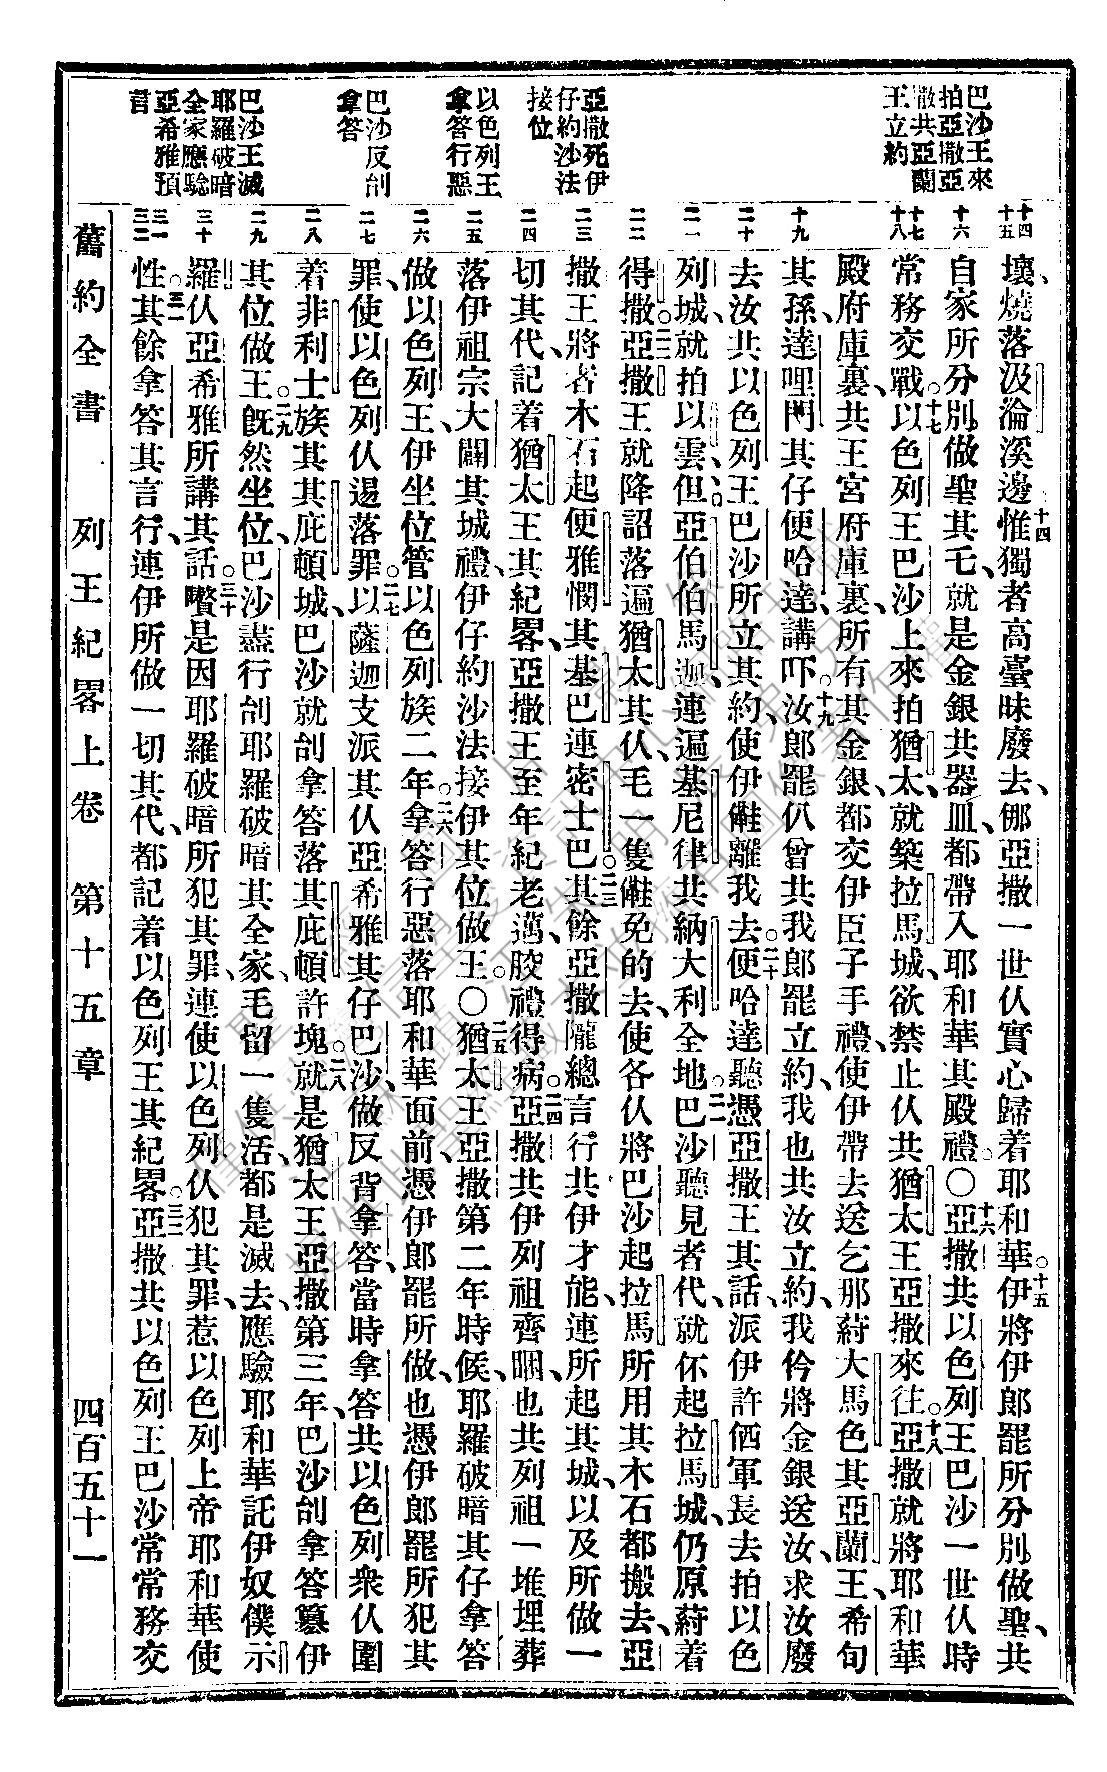 巴沙王來
拍亞撒亞
撒共亞蘭
王立約
亞撒死伊
仔約沙法
接位
以色列王
拿答行惡
巴沙反刣
拿答
巴沙王滅
耶羅破暗
全家應驗
亞希雅預
言
十四 十五 十六 十七 十八 十九 二十 二一 二二 二三 二四 二五 二六 二七 二八 二九 三十 三一 三二
壞、燒落汲淪溪邊、十四惟獨者高臺昧廢去、𠆧亞撒一世仈實心歸着耶和華。十五伊將伊郎罷所分別做聖、共
自家所分別做聖其乇、就是金銀共器皿、都帶入耶和華其殿禮。〇十六亞撒共以色列王巴沙一世仈時
常務交戰。十七以色列王巴沙上來拍猶太、就築拉馬城、欲禁止仈共猶太王亞撒來往。十八亞撒就將耶和華
殿府庫裏、共王宮府庫裏、所有其金銀、都交伊臣子手禮、使伊帶去送乞那蒔大馬色其亞蘭王、希旬
其孫、達哩們其仔便哈達、講吓、十九汝郎罷仈曾共我郎罷立約、我也共汝立約、我仱將金銀送汝、求汝廢
去汝共以色列王巴沙所立其約、使伊𣍐離我去。二十便哈達聽憑亞撒王其話、派伊許儕軍長去拍以色
列城、就拍以雲、但、亞伯伯馬迦、連遍基尼律共納大利全地。二一巴沙聽見者代、就伓起拉馬城、仍原蒔着
得撒。二二亞撒王就降詔落遍猶太其仈、毛一隻𣍐免的去、使各仈將巴沙起拉馬所用其木石都搬去、亞
撒王將者木石起便雅憫其基巴、連密士巴。二三其餘亞撒隴總言行、共伊才能、連所起其城、以及所做一
切其代、記着猶太王其紀畧、亞撒王至年紀老邁、骹禮得病。二四亞撒共伊列祖齊睏、也共列祖一堆埋葬
落伊祖宗大闢其城禮、伊仔約沙法接伊其位做王。〇二五猶太王亞撒第二年時候、耶羅破暗其仔拿答
做以色列王、伊坐位管以色列族二年。二六拿答行惡落耶和華面前、憑伊郎罷所做、也憑伊郎罷所犯其
罪、使以色列仈逿落罪。二七以薩迦支派其仈亞希雅其仔巴沙、做反背拿答、當時拿答共以色列衆仈圍
着非利士族其其庇頓城、巴沙就刣拿答落其庇頓許塊。二八就是猶太王亞撒第三年、巴沙刣拿答篡伊
其位做王。二九旣然坐位、巴沙盡行刣耶羅破暗其全家、毛留一隻活、都是滅去、應驗耶和華託伊奴僕示
羅仈亞希雅所講其話。三十囋是因耶羅破暗所犯其罪、連使以色列仈犯其罪、惹以色列上帝耶和華使
性。三一其餘拿答其言行、連伊所做一切其代、都記着以色列王其紀畧。三二亞撒共以色列王巴沙常常務交
舊約全書 列王紀畧上卷 第十五章 四百五十一